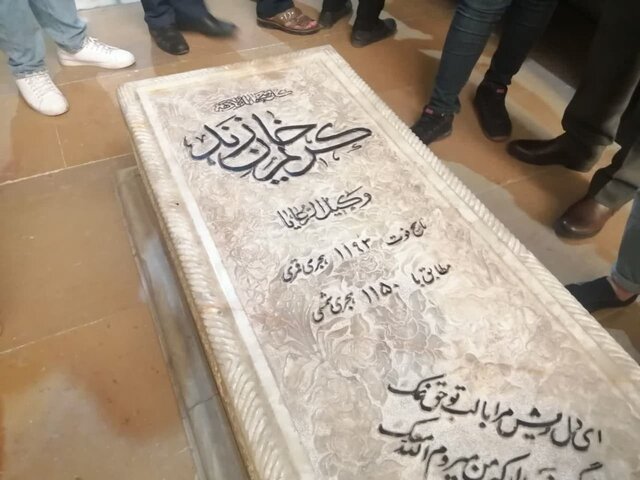 کل شیء هالک الا وجهه
کریم خان زند
وکیل الرعایا
تاریخ فوت ۱۱۹۳ هجری قمری
مطابق با ۱۱۵۰ هجری شمسی
ای دل ریش مرا با لب تو حق نمک
که من میروم الله معک